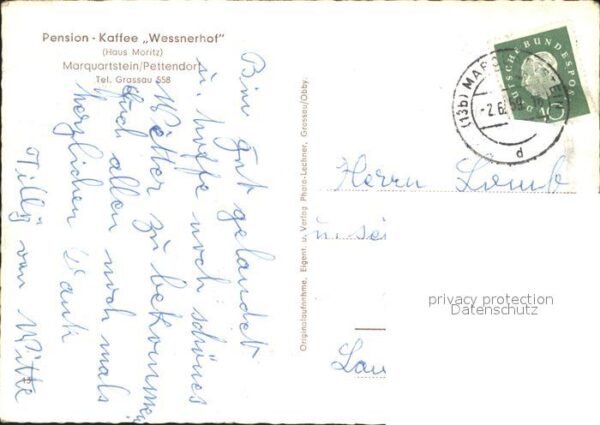 Pension - Kaffee „Wessnerhof"
(Haus Moritz)
Marquartstein/Pettendorf
Tel. Grassau 558
Bin gut gelandet
u. hoffe noch schönes
Wetter zu bekommen
Euch allen noch mals
herzlichen Dank
Tilly von Witte
Originalaufnahme, Eigent. u. Verlag Photo-Lechner, Grassau/Obby.
DEUTSCHE BUNDESPOST
(13b) MAR
-2.6
d
Herrn Lomb
u. sei
Lau
privacy protection
Datenschutz